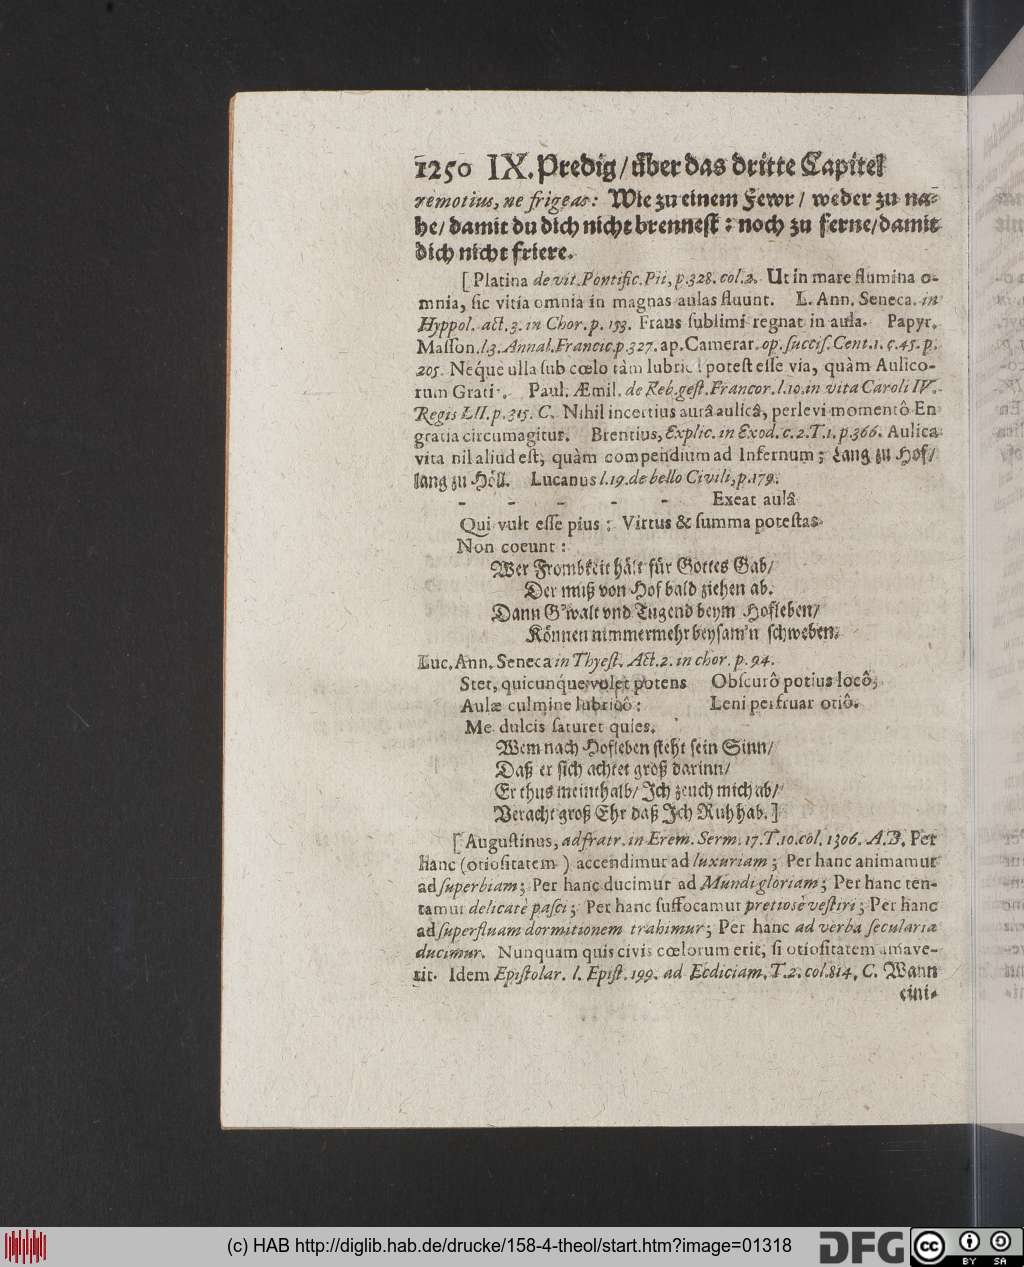 1250 IX. Predig / über das dritte Capitel
remotius, ne frigeas: Wie zu einem Fewr / weder zu na-
he / damit du dich nicht brennest: noch zu ferne / damit
dich nicht friere.
[Platina de vit. Pontific. Pii, p. 328. col. 2. Ut in mare flumina o-
mnia, sic vitia omnia in magnas aulas fluunt. L. Ann. Seneca. in
Hyppol. act. 3. in Chor. p. 153. Fraus sublimi regnat in aula. Papyr.
Masson. l. 3. Annal. Francic. p. 327. ap. Camerar. op. succis. Cent. 1. c. 45. p.
205. Neque ulla sub cœlo tàm potest esse via, quàm Aulico-
rum Paul. Æmil. de Reb. gest. Francor. l. 10. in vita Caroli IV.
Regis LII. p. 315. C. Nihil incertius aurâ aulicâ, perlevi momentô En
gratia circumagitur. Brentius, Explic. in Exod. c. 2. T. 1. p. 366. Aulica
vita nil aliud est, quàm compendium ad Infernum; Lang zu Hof /
lang zu Höll. Lucanus l. 19. de bello Civili, p. 179.
- - - - - Exeat aulâ
Qui vult esse pius: Virtus & summa potestas
Non coeunt:
Wer Frombkeit hält für Gottes Gab /
Der muß von Hof bald ziehen ab.
Dann G'walt vnd Tugend beym Hofleben /
Können nimmermehr beysam'n schweben.
Luc. Ann. Seneca in Thyest. Act. 2. in chor. p. 94.
Stet, quicunque volet potens Obscurô potius locô,
Aulæ culmine lubricô: Leni perfruar otiô.
Me dulcis saturet quies.
Wem nach Hofleben steht sein Sinn /
Daß er sich achtet groß darinn /
Er thus meinthalb / Ich zeuch mich ab /
Veracht groß Ehr daß Ich Ruh hab.]
[Augustinus, ad fratr. in Erem. Serm. 17. T. 10. col. 1306. A. B. Per
hanc (otiositatem) accendimur ad luxuriam; Per hanc animamur
ad superbiam; Per hanc ducimur ad Mundi gloriam; Per hanc ten-
tamur delicatè pasci; Per hanc suffocamur pretiosè vestiri; Per hanc
ad superfluam dormitionem trahimur; Per hanc ad verba secularia
ducimur. Nunquam quis civis cœlorum erit, si otiositatem amave-
rit. Idem Epistolar. l. Epist. 199. ad Ecdiciam, T. 2. col. 814. C. Wann
eini-
(c) HAB http://diglib.hab.de/drucke/158-4-theol/start.htm?image=01318
DFG
cc
BY SA